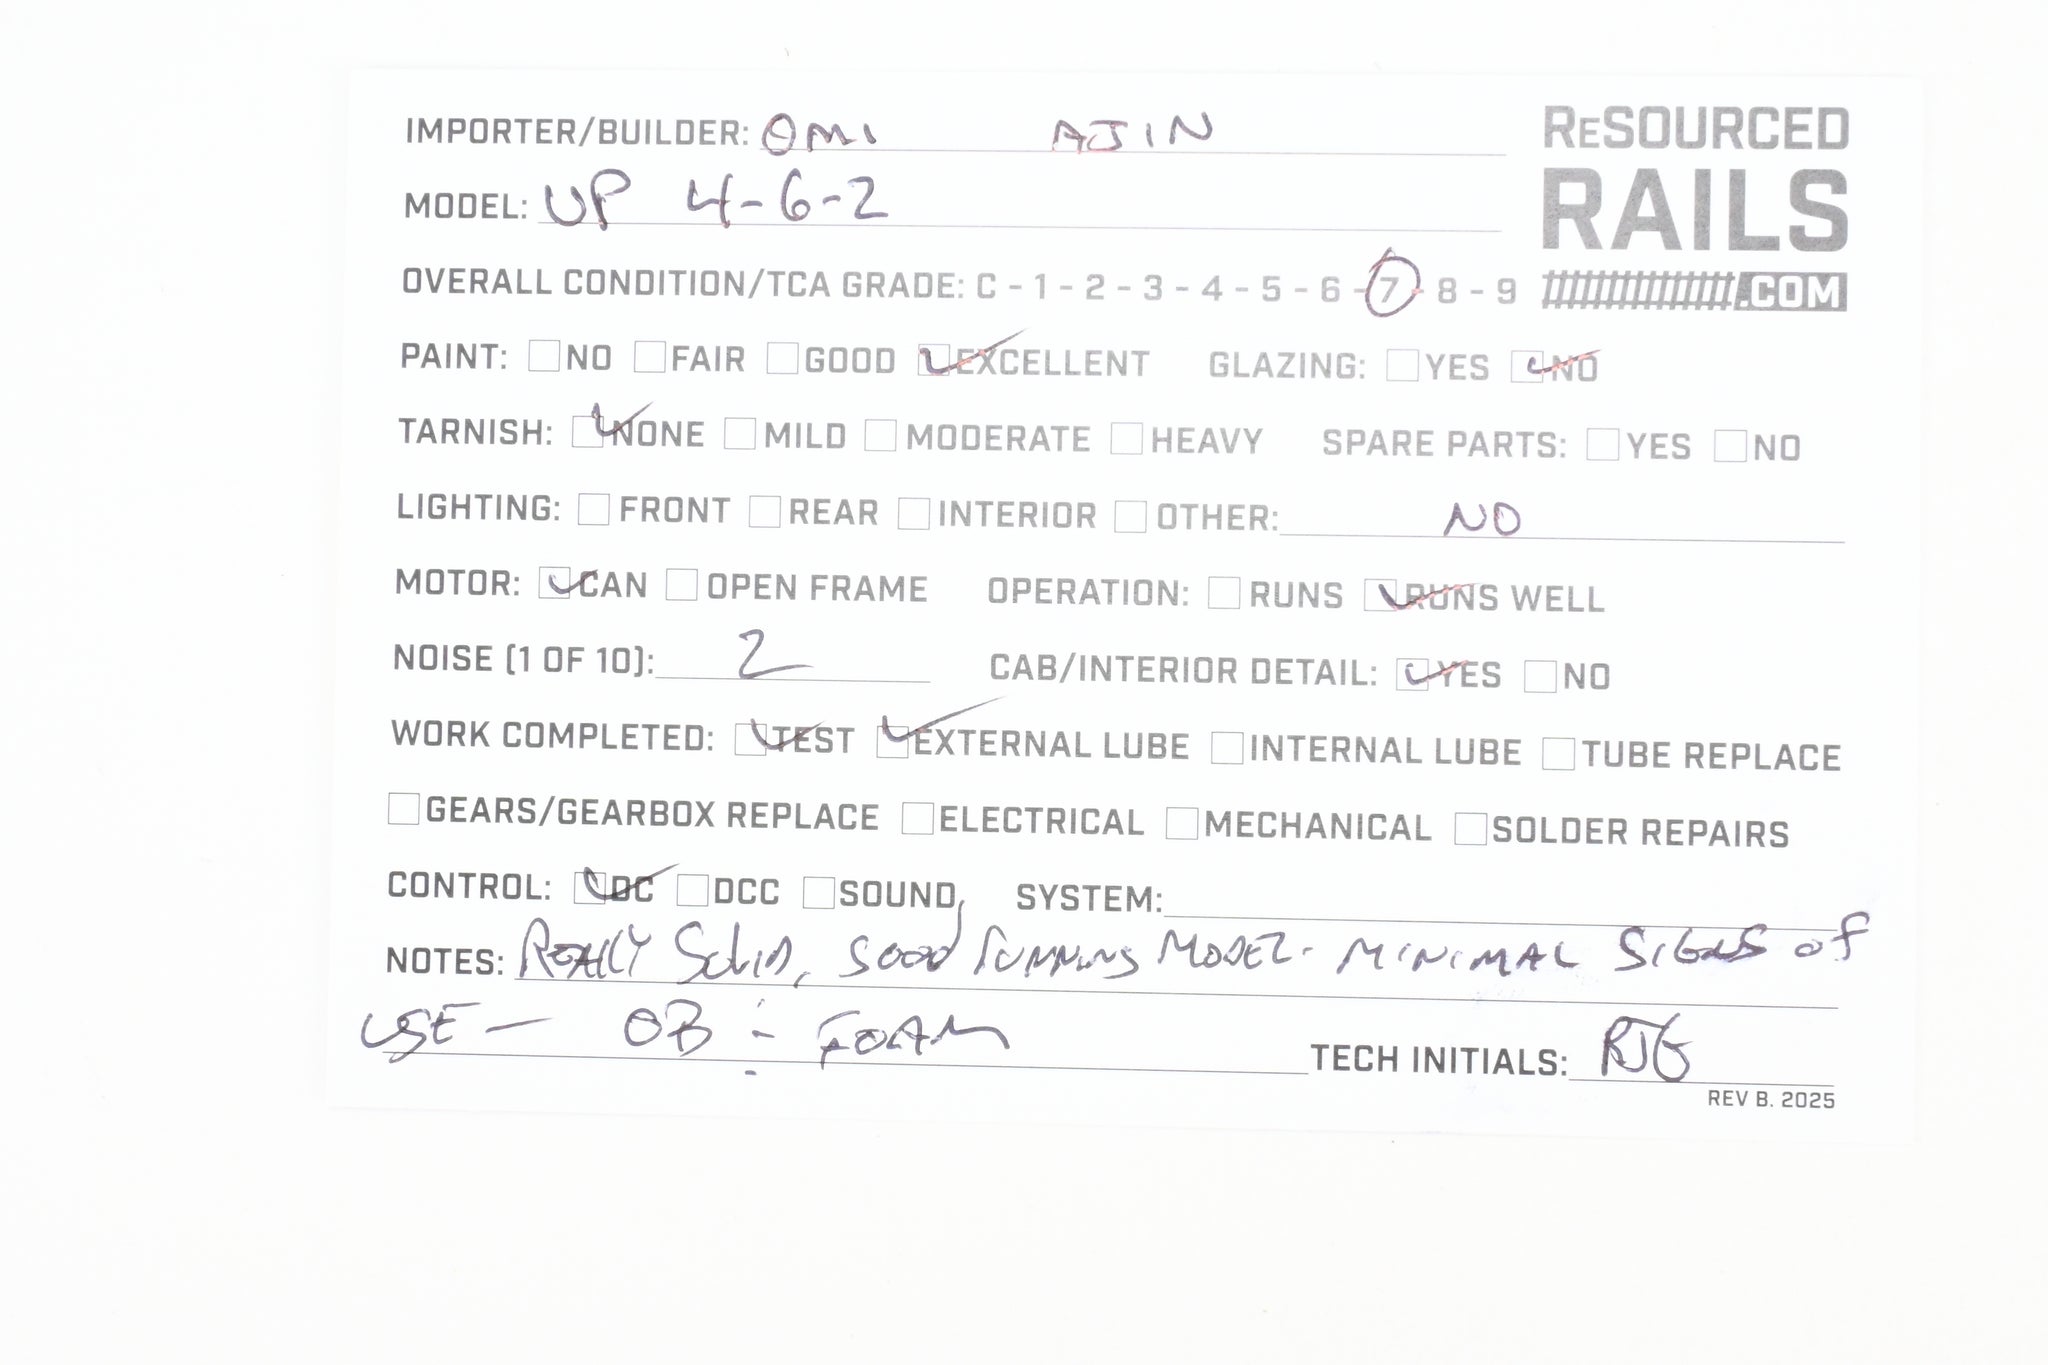 IMPORTER/BUILDER: OMI AJIN
ReSOURCED
RAILS
.COM
MODEL: UP 4-6-2
OVERALL CONDITION/TCA GRADE: C - 1 - 2 - 3 - 4 - 5 - 6 - 7 - 8 - 9
PAINT: NO FAIR GOOD EXCELLENT GLAZING: YES NO
TARNISH: NONE MILD MODERATE HEAVY SPARE PARTS: YES NO
LIGHTING: FRONT REAR INTERIOR OTHER: NO
MOTOR: CAN OPEN FRAME OPERATION: RUNS RUNS WELL
NOISE (1 OF 10): 2 CAB/INTERIOR DETAIL: YES NO
WORK COMPLETED: TEST EXTERNAL LUBE INTERNAL LUBE TUBE REPLACE
GEARS/GEARBOX REPLACE ELECTRICAL MECHANICAL SOLDER REPAIRS
CONTROL: DC DCC SOUND SYSTEM:
NOTES: REALLY SOLID, GOOD RUNNING MODEL. MINIMAL SIGNS OF
USE - OB - FOAM TECH INITIALS: RJG
REV B. 2025